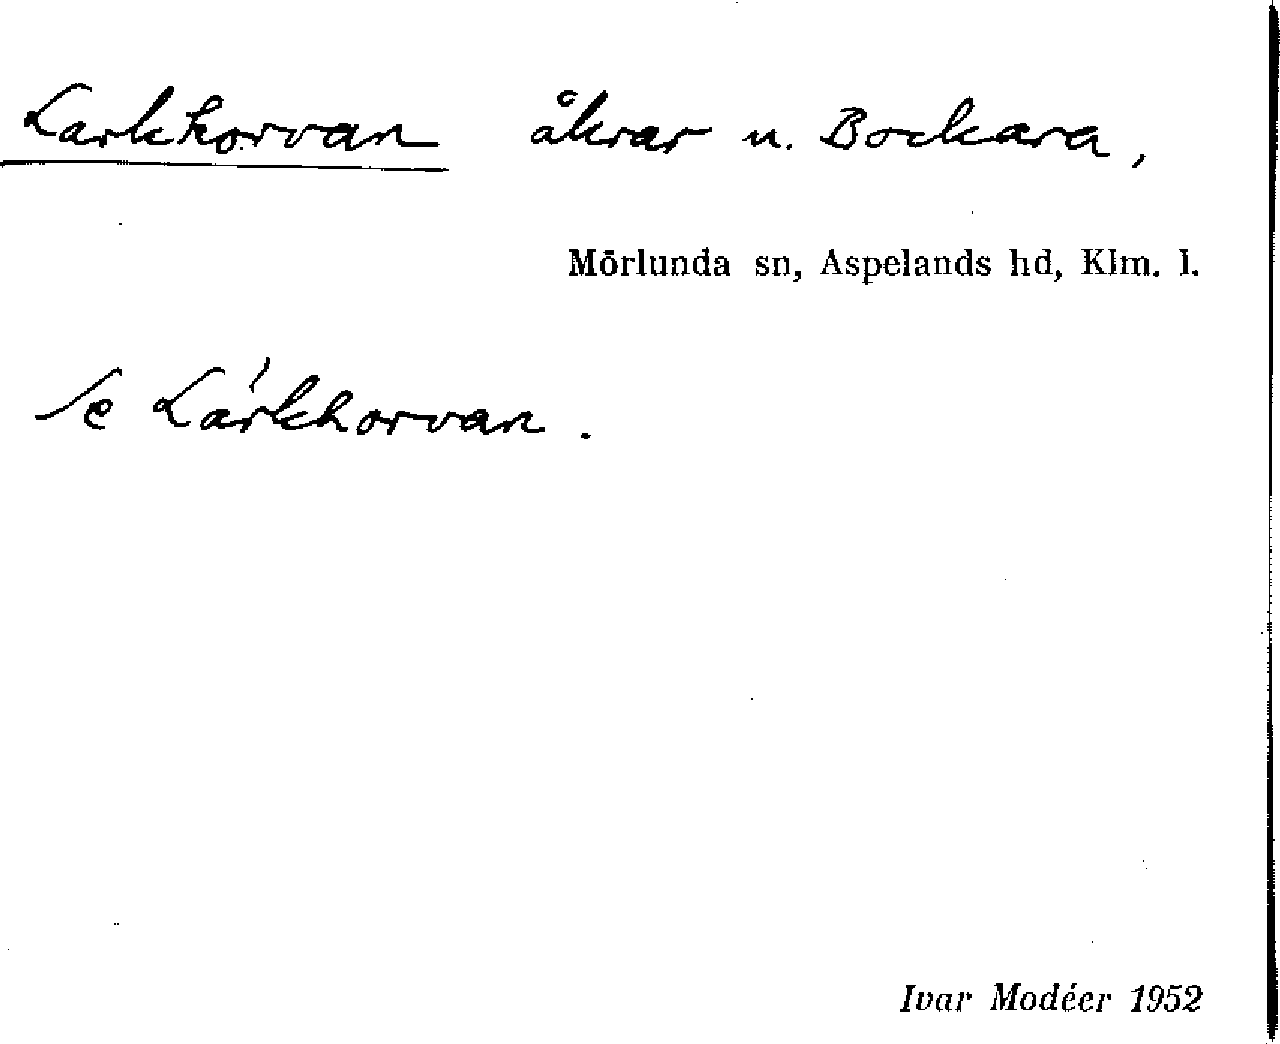 Larkhorvan åkrar u. Bockara,
Mörlunda sn, Aspelands hd, Klm. l.
Se Lárkhorvan.
Ivar Modéer 1952